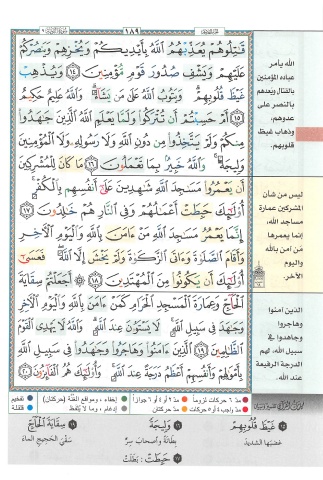 سورة التوبة ٩
١٨٩
الجزء العاشر
قَٰتِلُوهُمۡ يُعَذِّبۡهُمُ ٱللَّهُ بِأَيۡدِيكُمۡ وَيُخۡزِهِمۡ وَيَنصُرۡكُمۡ
عَلَيۡهِمۡ وَيَشۡفِ صُدُورَ قَوۡمٖ مُّؤۡمِنِينَ ١٤ وَيُذۡهِبۡ
غَيۡظَ قُلُوبِهِمۡۗ وَيَتُوبُ ٱللَّهُ عَلَىٰ مَن يَشَآءُۗ وَٱللَّهُ عَلِيمٌ حَكِيمٌ
١٥ أَمۡ حَسِبۡتُمۡ أَن تُتۡرَكُواْ وَلَمَّا يَعۡلَمِ ٱللَّهُ ٱلَّذِينَ جَٰهَدُواْ
مِنكُمۡ وَلَمۡ يَتَّخِذُواْ مِن دُونِ ٱللَّهِ وَلَا رَسُولِهِۦ وَلَا ٱلۡمُؤۡمِنِينَ
وَلِيجَةٗۚ وَٱللَّهُ خَبِيرُۢ بِمَا تَعۡمَلُونَ ١٦ مَا كَانَ لِلۡمُشۡرِكِينَ
أَن يَعۡمُرُواْ مَسَٰجِدَ ٱللَّهِ شَٰهِدِينَ عَلَىٰٓ أَنفُسِهِم بِٱلۡكُفۡرِۚ
أُوْلَٰٓئِكَ حَبِطَتۡ أَعۡمَٰلُهُمۡ وَفِي ٱلنَّارِ هُمۡ خَٰلِدُونَ ١٧
إِنَّمَا يَعۡمُرُ مَسَٰجِدَ ٱللَّهِ مَنۡ ءَامَنَ بِٱللَّهِ وَٱلۡيَوۡمِ ٱلۡأٓخِرِ
وَأَقَامَ ٱلصَّلَوٰةَ وَءَاتَى ٱلزَّكَوٰةَ وَلَمۡ يَخۡشَ إِلَّا ٱللَّهَۖ فَعَسَىٰٓ
أُوْلَٰٓئِكَ أَن يَكُونُواْ مِنَ ٱلۡمُهۡتَدِينَ ١٨ أَجَعَلۡتُمۡ سِقَايَةَ
ٱلۡحَآجِّ وَعِمَارَةَ ٱلۡمَسۡجِدِ ٱلۡحَرَامِ كَمَنۡ ءَامَنَ بِٱللَّهِ وَٱلۡيَوۡمِ ٱلۡأٓخِرِ
وَجَٰهَدَ فِي سَبِيلِ ٱللَّهِۚ لَا يَسۡتَوُۥنَ عِندَ ٱللَّهِۗ وَٱللَّهُ لَا يَهۡدِي ٱلۡقَوۡمَ
ٱلظَّٰلِمِينَ ١٩ ٱلَّذِينَ ءَامَنُواْ وَهَاجَرُواْ وَجَٰهَدُواْ فِي سَبِيلِ ٱللَّهِ
بِأَمۡوَٰلِهِمۡ وَأَنفُسِهِمۡ أَعۡظَمُ دَرَجَةً عِندَ ٱللَّهِۚ وَأُوْلَٰٓئِكَ هُمُ ٱلۡفَآئِزُونَ ٢٠
الله يأمر
عباده المؤمنين
بالقتال ويعدهم
بالنصر على
عدوهم،
وذهاب غيظ
قلوبهم.
ليس من شأن
المشركين عمارة
مساجد الله،
إنما يعمرها
من آمن بالله
واليوم
الآخر.
الذين آمنوا
وهاجروا
وجاهدوا في
سبيل الله، لهم
الدرجة الرفيعة
عند الله.
مد ٦ حركات لزوماً مد ٢ أو ٤ أو ٦ جوازاً إخفاء، ومواقع الغنة (حركتان) تفخيم
مد واجب ٤ أو ٥ حركات مد حركتان إدغام، وما لا يلفظ قلقلة
١٥ غَيْظَ قُلُوبِهِمْ
غضبها الشديد
١٦ وَلِيجَةً
بطانة وأصحاب سر
١٧ حَبِطَتْ : بطلت
١٩ سِقَايَةَ الْحَاجِّ
سقي الحجيج الماء